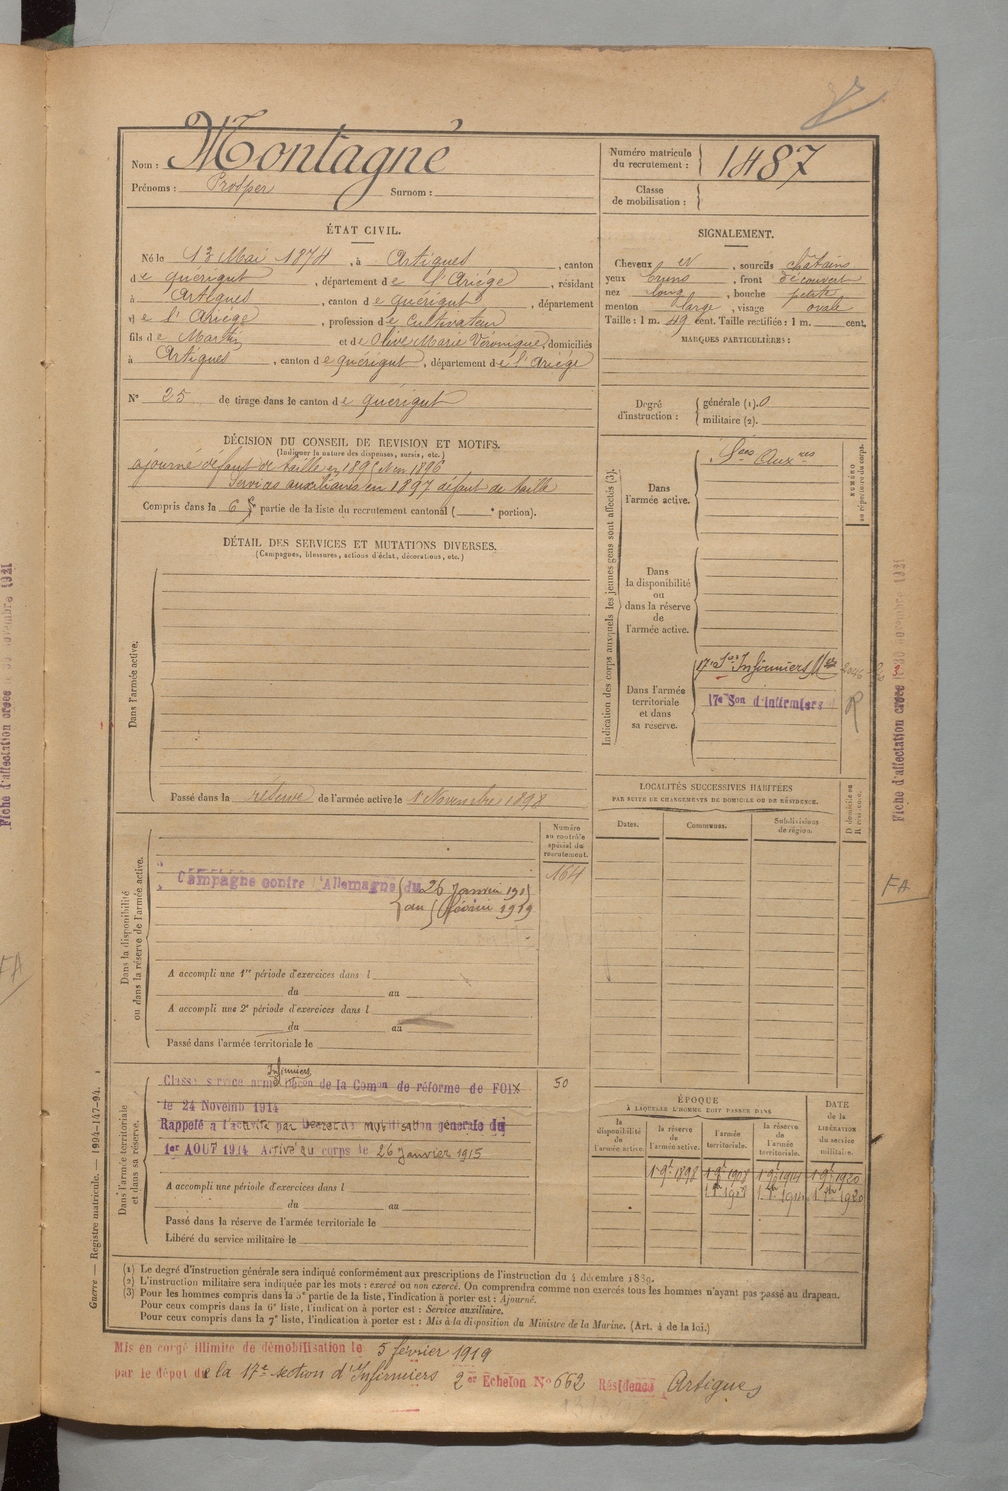 Nom : Montagné
Prénoms : Prosper Surnom :
Numéro matricule du recrutement : 1487
Classe de mobilisation :
ÉTAT CIVIL.
Né le 13 Mai 1874, à Artigues, canton
de quérigut, département de l'Ariége, résidant
à Artigues, canton de quérigut, département
de l'Ariége, profession de Cultivateur
fils de Martin et de Olive Marie Véronique, domiciliés
à Artigues, canton de quérigut, département de l'Ariége
N° 25 de tirage dans le canton de quérigut
SIGNALEMENT.
Cheveux et, sourcils chatains
yeux bruns, front découvert
nez long, bouche petite
menton large, visage ovale
Taille : 1 m. 49 cent. Taille rectifiée : 1 m. cent.
MARQUES PARTICULIÈRES :
Degré d'instruction :
générale (1). 0
militaire (2).
DÉCISION DU CONSEIL DE REVISION ET MOTIFS.
(Indiquer la nature des dispenses, sursis, etc.)
ajourné défaut de taille en 1895 et en 1896
Services auxiliaires en 1897 défaut de taille
Compris dans la 6e partie de la liste du recrutement cantonal ( portion).
DÉTAIL DES SERVICES ET MUTATIONS DIVERSES.
(Campagnes, blessures, actions d'éclat, décorations, etc.)
Dans l'armée active.
Passé dans la réserve de l'armée active le 1 Novembre 1898
Indication des corps auxquels les jeunes gens sont affectés (3).
NUMÉRO au répertoire du corps.
Dans l'armée active.
Sces Auxres
Dans la disponibilité ou dans la réserve de l'armée active.
Dans l'armée territoriale et dans sa réserve.
17e Son Infirmiers Mres
17e Son d'Infirmiers
R
LOCALITÉS SUCCESSIVES HABITÉES
PAR SUITE DE CHANGEMENTS DE DOMICILE OU DE RÉSIDENCE.
Dates. Communes. Subdivisions de région. D. domicile ou R. résidence.
Dans la disponibilité ou dans la réserve de l'armée active.
Numéro au contrôle spécial du recrutement.
164
Campagne contre l'Allemagne du 26 Janvier 1915
au février 1919
A accompli une 1re période d'exercices dans l
du au
A accompli une 2e période d'exercices dans l
du au
Passé dans l'armée territoriale le
Dans l'armée territoriale et dans sa réserve.
Infirmiers
Classé service armé Décon de la Comon de réforme de FOIX
50
le 24 Novemb 1914
Rappelé à l'activité par Décret de mobilisation générale du
1er AOUT 1914 Arrivé au corps le 26 Janvier 1915
A accompli une période d'exercices dans l
du au
Passé dans la réserve de l'armée territoriale le
Libéré du service militaire le
ÉPOQUE
À LAQUELLE L'HOMME DOIT PASSER DANS
la disponibilité de l'armée active. la réserve de l'armée active. l'armée territoriale. la réserve de l'armée territoriale. DATE de la LIBÉRATION du service militaire.
1 9bre 1898 1 9bre 1908 1 9bre 1914 1 9bre 1920
(1) Le degré d'instruction générale sera indiqué conformément aux prescriptions de l'instruction du 4 décembre 1889.
(2) L'instruction militaire sera indiquée par les mots : exercé ou non exercé. On comprendra comme non exercés tous les hommes n'ayant pas passé au drapeau.
(3) Pour les hommes compris dans la 5e partie de la liste, l'indication à porter est : Ajourné.
Pour ceux compris dans la 6e liste, l'indication à porter est : Service auxiliaire.
Pour ceux compris dans la 7e liste, l'indication à porter est : Mis à la disposition du Ministre de la Marine. (Art. 4 de la loi.)
Mis en congé illimité de démobilisation le 5 février 1919
par le dépôt de la 17e section d'Infirmiers 2er Echelon N° 662 Résidence Artigues
Guerre — Registre matricule. — 1994-147-94.
Fiche d'affectation créée le 30 novembre 1921
FA